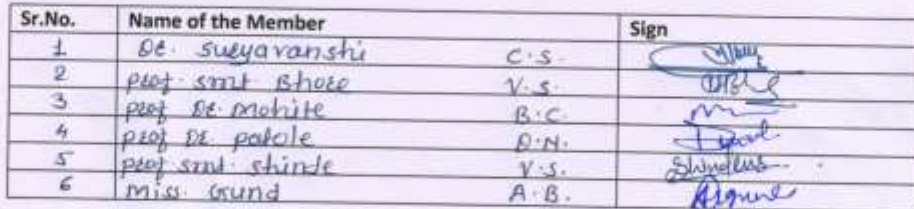 Sr.No. Name of the Member Sign
1 Dr. Suryavanshi C.S.
2 Prof. Smt Bhore V.S.
3 Prof Dr. Mohite B.C.
4 Prof Dr. Patole D.N.
5 Prof Smt. Shinde V.S.
6 Miss. Gund A.B.